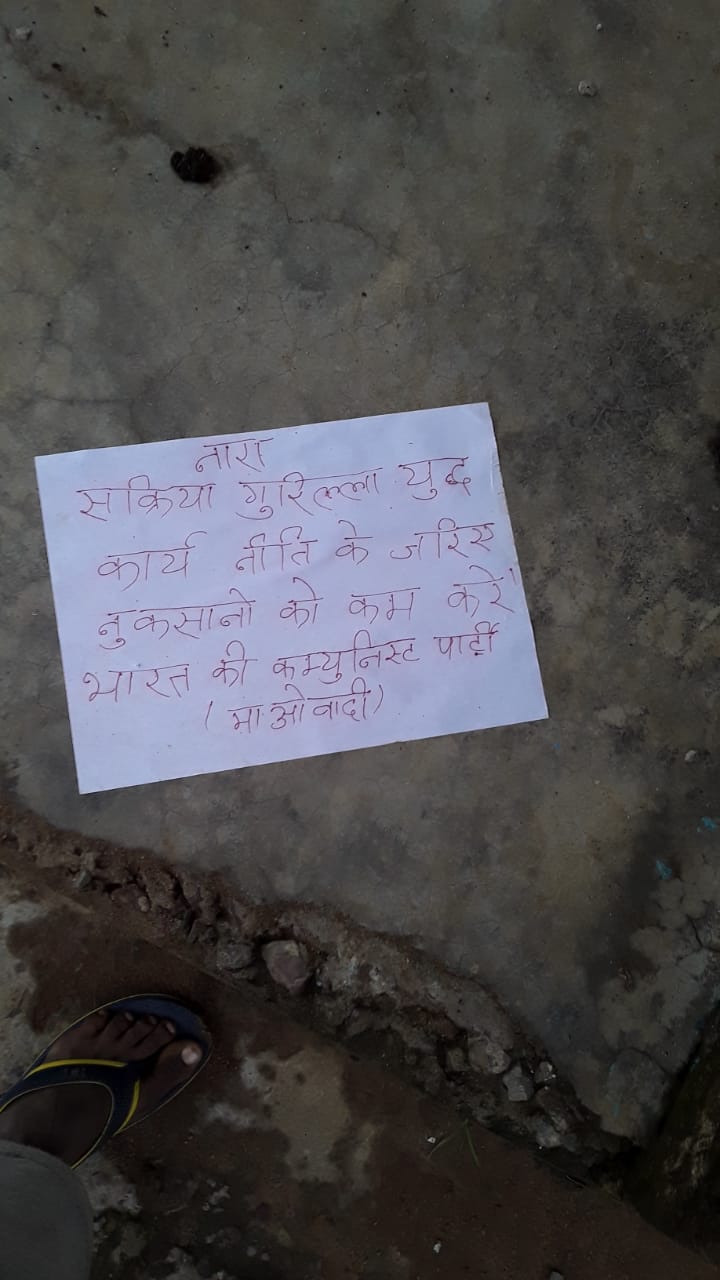 नारा
सक्रिया गुरिल्ला युद्ध
कार्य नीति के जरिए
नुकसानो को कम करें
भारत की कम्युनिस्ट पार्टी
(माओवादी)